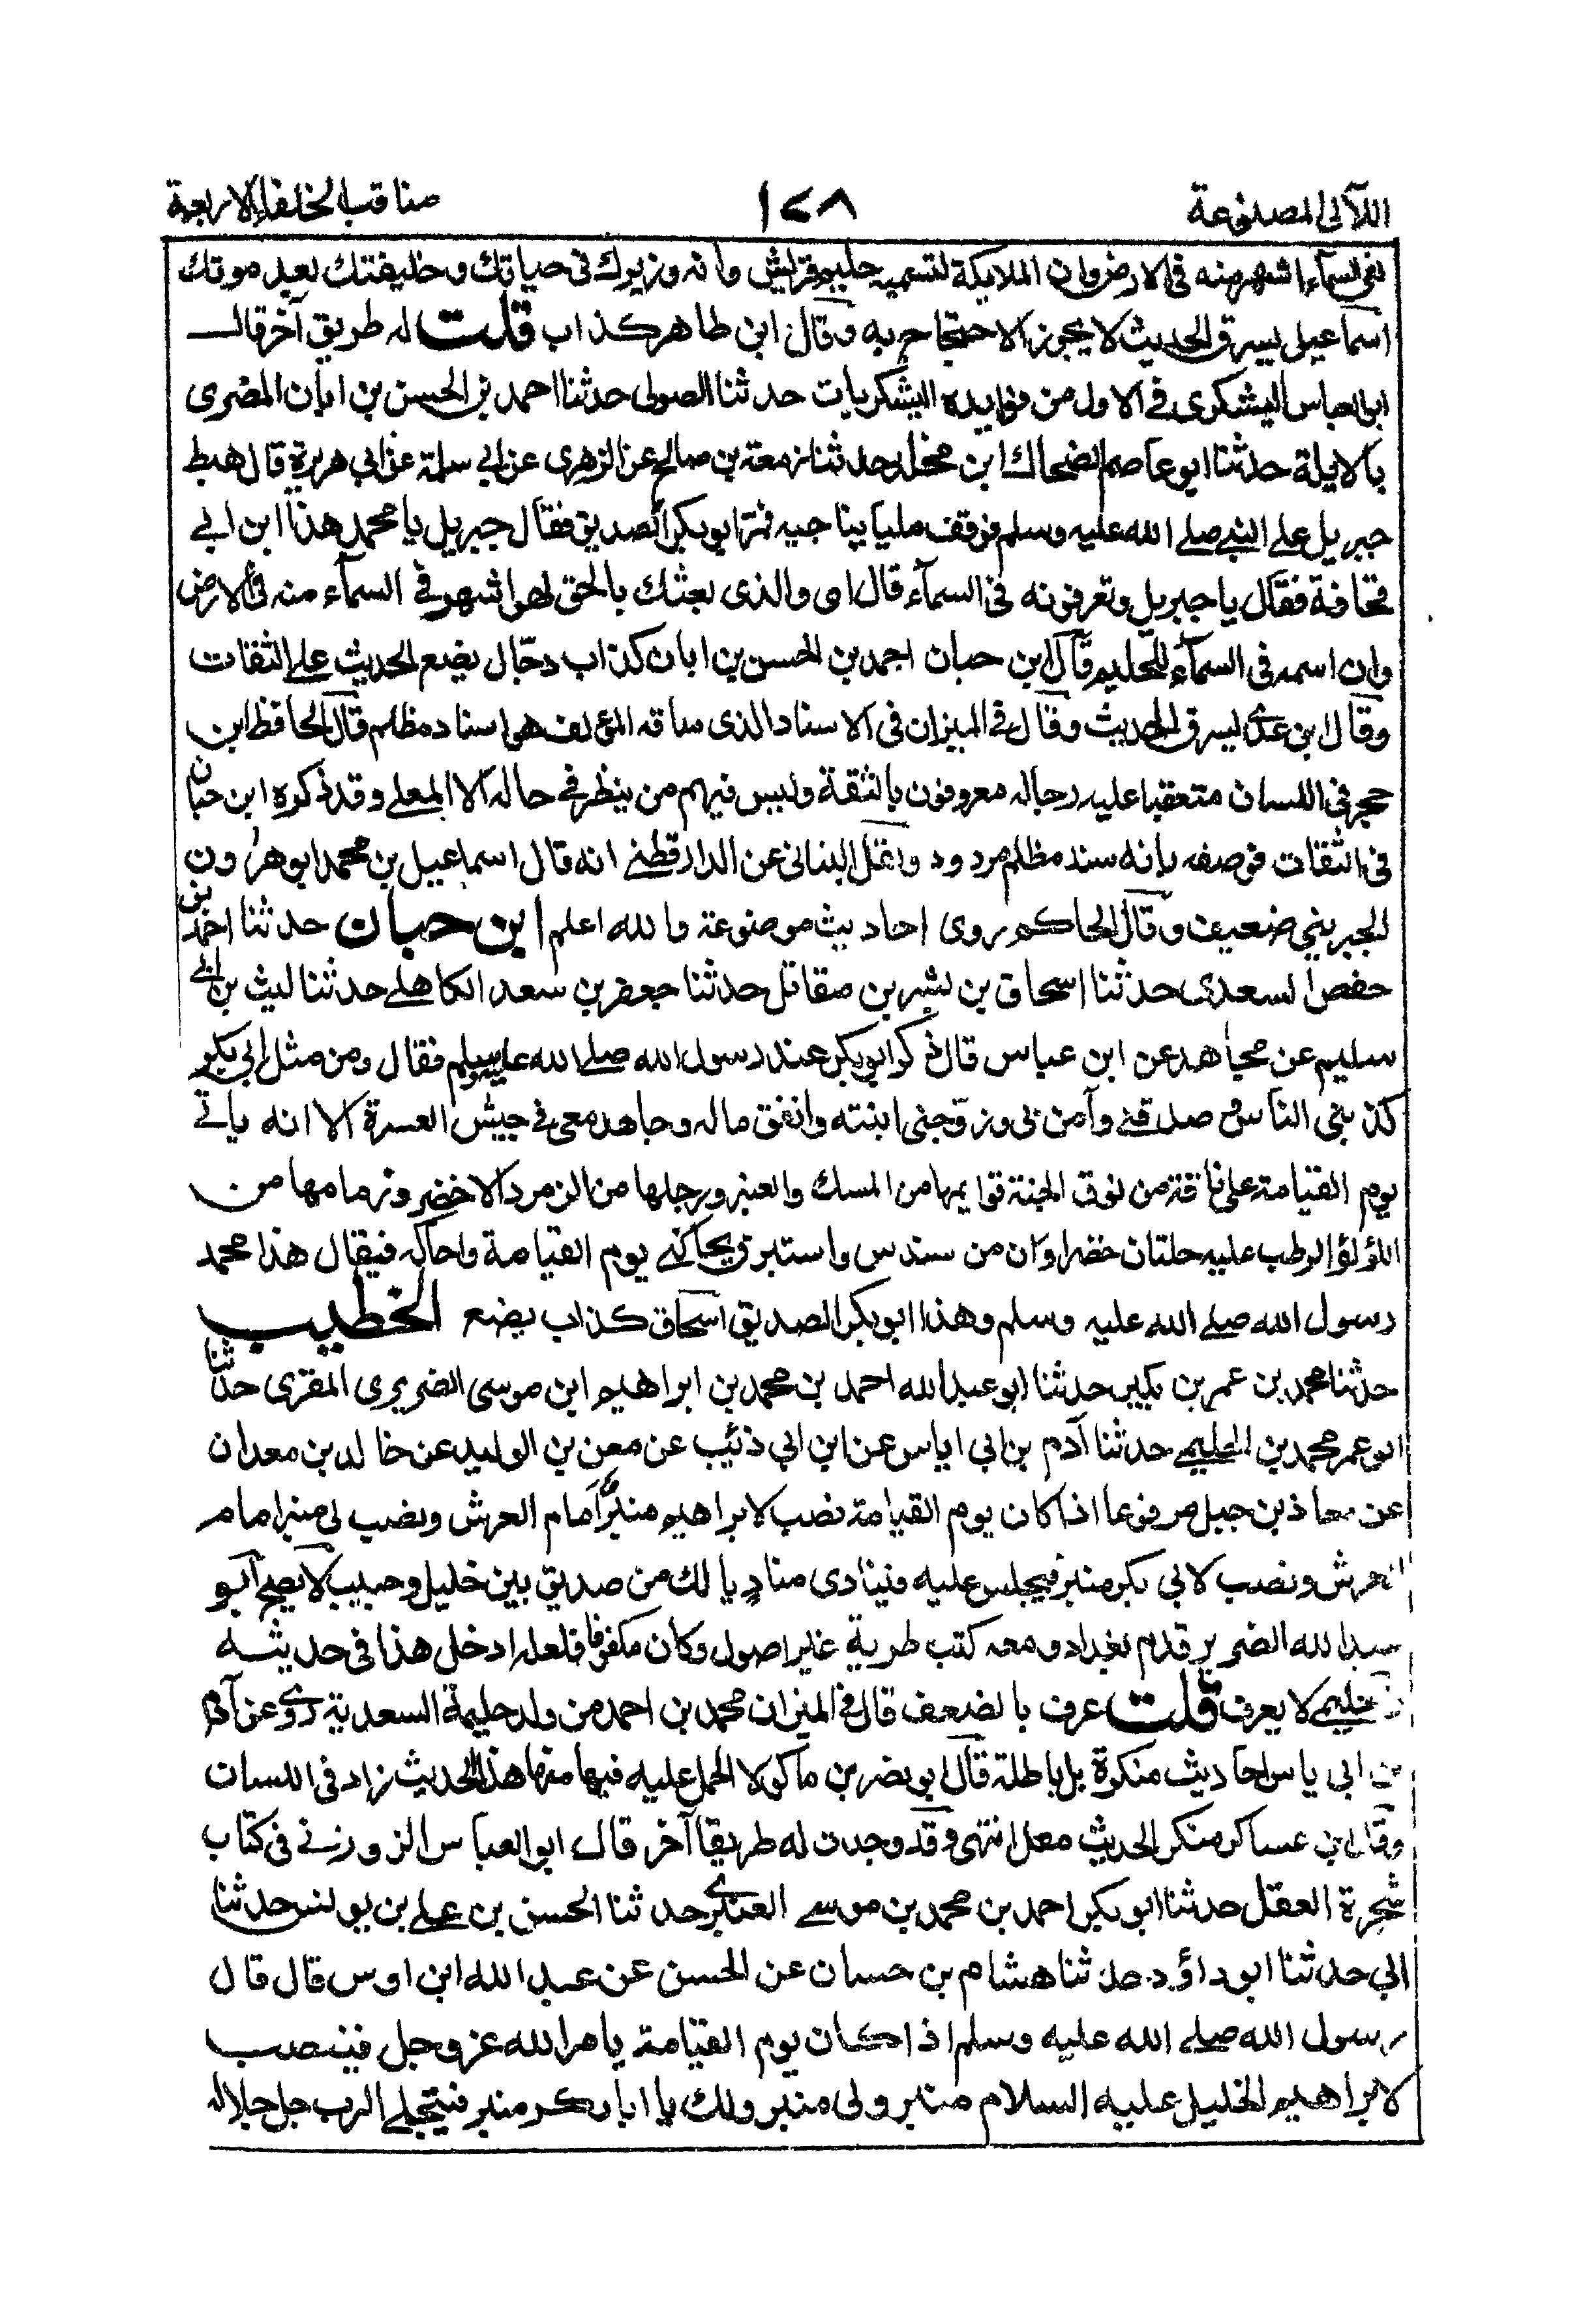 اللآلي المصنوعة
١٤٨
مناقب الخلفاء الاربعة
لفي السمآء اشهر منه في الارض وان الملايكة لتسميه حليم قريش وانه وزيرك في حياتك وخليفتك بعد موتك
اسماعيل يسرق الحديث لا يجوز الاحتجاج به وقال ابن طاهر كذاب قلت له طريق آخر قال
ابو العباس اليشكري في الاول من فوايده اليشكريات حدثنا الصولي حدثنا احمد بن الحسن بن ابان المضري
بالايلة حدثنا ابو عاصم الضحاك ابن مخلد حدثنا زمعة بن صالح عن الزهري عن ابي سلمة عن ابي هريرة قال هبط
جبريل على النبي صلى الله عليه وسلم فوقف مليا يناجيه فمر ابو بكر الصديق فقال جبريل يا محمد هذا ابن ابي
قحافة فقال يا جبريل وتعرفونه في السمآء قال اي والذي بعثك بالحق لهو اشهر في السمآء منه في الارض
وان اسمه في السمآء للحليم قال ابن حبان احمد بن الحسن بن ابان كذاب دجّال يضع الحديث على الثقات
وقال ابن عدي يسرق الحديث وقال في الميزان في الاسناد الذي ساقه المؤلف هو اسناد مظلم قال الحافظ ابن
حجر في اللسان متعقبا عليه رجاله معروفون بالثقة وليس فيهم من ينظر في حاله الا المعلى وقد ذكره ابن حبان
في الثقات فوصفه بانه سند مظلم مردود ونقل البناني عن الدارقطني انه قال اسماعيل بن محمد ابو هرون
الجبريني ضعيف وقال الحاكم روى احاديث موضوعة والله اعلم ابن حبان حدثنا احمد بن
حفص السعدي حدثنا اسحاق بن بشر بن مقاتل حدثنا جعفر بن سعد الكاهلي حدثنا ليث بن ابي
سليم عن مجاهد عن ابن عباس قال ذكر ابو بكر عند رسول الله صلى الله عليه وسلم فقال ومن مثل ابي بكر
كذبني الناس وصدقني وآمن بي وزوجني ابنته وانفق ماله وجاهد معي في جيش العسرة الا انه ياتي
يوم القيامة على ناقة من نوق الجنة قوايمها من المسك والعنبر ورجلها من الزمرد الاخضر وزمامها من
اللؤلؤ الرطب عليه حلتان خضراوان من سندس واستبرق يحاكني يوم القيامة واحاكه فيقال هذا محمد
رسول الله صلى الله عليه وسلم وهذا ابو بكر الصديق اسحاق كذاب يضع الخطيب
حدثنا محمد بن عمر بن بكير حدثنا ابو عبد الله احمد بن محمد بن ابراهيم ابن موسى الضريري المقري حدثنا
ابو عمر محمد بن الحليمي حدثنا آدم بن ابي اياس عن ابن ابي ذئب عن معن بن الوليد عن خالد بن معدان
عن معاذ بن جبل مرفوعا اذا كان يوم القيامة نصب لابراهيم منبر أمام العرش ونصب لي منبر امام
العرش ونصب لابي بكر منبر فيجلس عليه فينادي منادٍ يا لك من صديق بين خليل وحبيب لا يصح ابو
عبد الله الضرير قدم بغداد ومعه كتب طرية غير اصول وكان مكفوفا فلعله ادخل هذا في حديثه
حليمي لا يعرف قلت عرف بالضعف قال في الميزان محمد بن احمد من ولد حليمة السعدية روى عن آدم
بن ابي ياس احاديث منكرة بل باطلة قال ابو نصر بن ماكولا الحمل عليه فيها منها هذا الحديث زاد في اللسان
وقال ابن عساكر منكر الحديث معل انتهى وقد وجدت له طريقا آخر قال ابو العباس الزوزني في كتاب
شجرة العقل حدثنا ابو بكر احمد بن محمد بن موسى العنكري حدثنا الحسن بن علي بن يونس حدثنا
ابي حدثنا ابو داؤد حدثنا هشام بن حسان عن الحسن عن عبد الله ابن اوس قال قال
رسول الله صلى الله عليه وسلم اذا كان يوم القيامة يامر الله عز وجل فينصب
لابراهيم الخليل عليه السلام منبر ولي منبر ولك يا ابا بكر منبر فيتجلى الرب جل جلاله